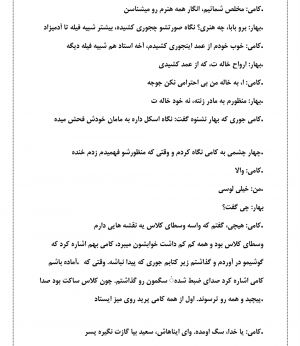 .کامی: مخلص شمائیم، انگار همه هنرم رو میشناسن
.بهار: برو بابا، چه هنری؟ نگاه صورتشو چجوری کشیده، بیشتر شبیه فیله تا آدمیزاد
.کامی: خوب خودم از عمد اینجوری کشیدم، آخه استاد هم شبیه فیل دیگه
.بهار: ارواح خاله ت، که از عمد کشیدی
.کامی: ا، به خاله من بی احترامی نکن جوجه
.بهار: منظورم به مادر زنته، نه خود خاله ت
.کامی جوری که بهار نشنوه گفت: نگاه اسکل داره به مامان خودش فحش میده
.چهار چشمی به کامی نگاه کردم و وقتی که منظورشو فهمیدم زدم خنده
.کامی: والا
.من: خیلی لوسی
بهار: چی گفت؟
.کامی: هیچی، گفتم که واسه وسطای کلاس یه نقشه هایی دارم
وسطای کلاس بود و همه کم کم داشت خوابشون میبرد، کامی بهم اشاره کرد که
گوشیمو در آوردم و گذاشتم زیر کتابم جوری که پیدا نباشه. وقتی که .آماده باشم
کامی اشاره کرد صدای ضبط شده سگمون رو گذاشتم. چون کلاس ساکت بود صدا
.پیچید و همه رو ترسوند. اول از همه کامی پرید روی میز ایستاد
.کامی: یا خدا، سگ اومده. وای ایناهاش، سعید بپا گازت نگیره پسر